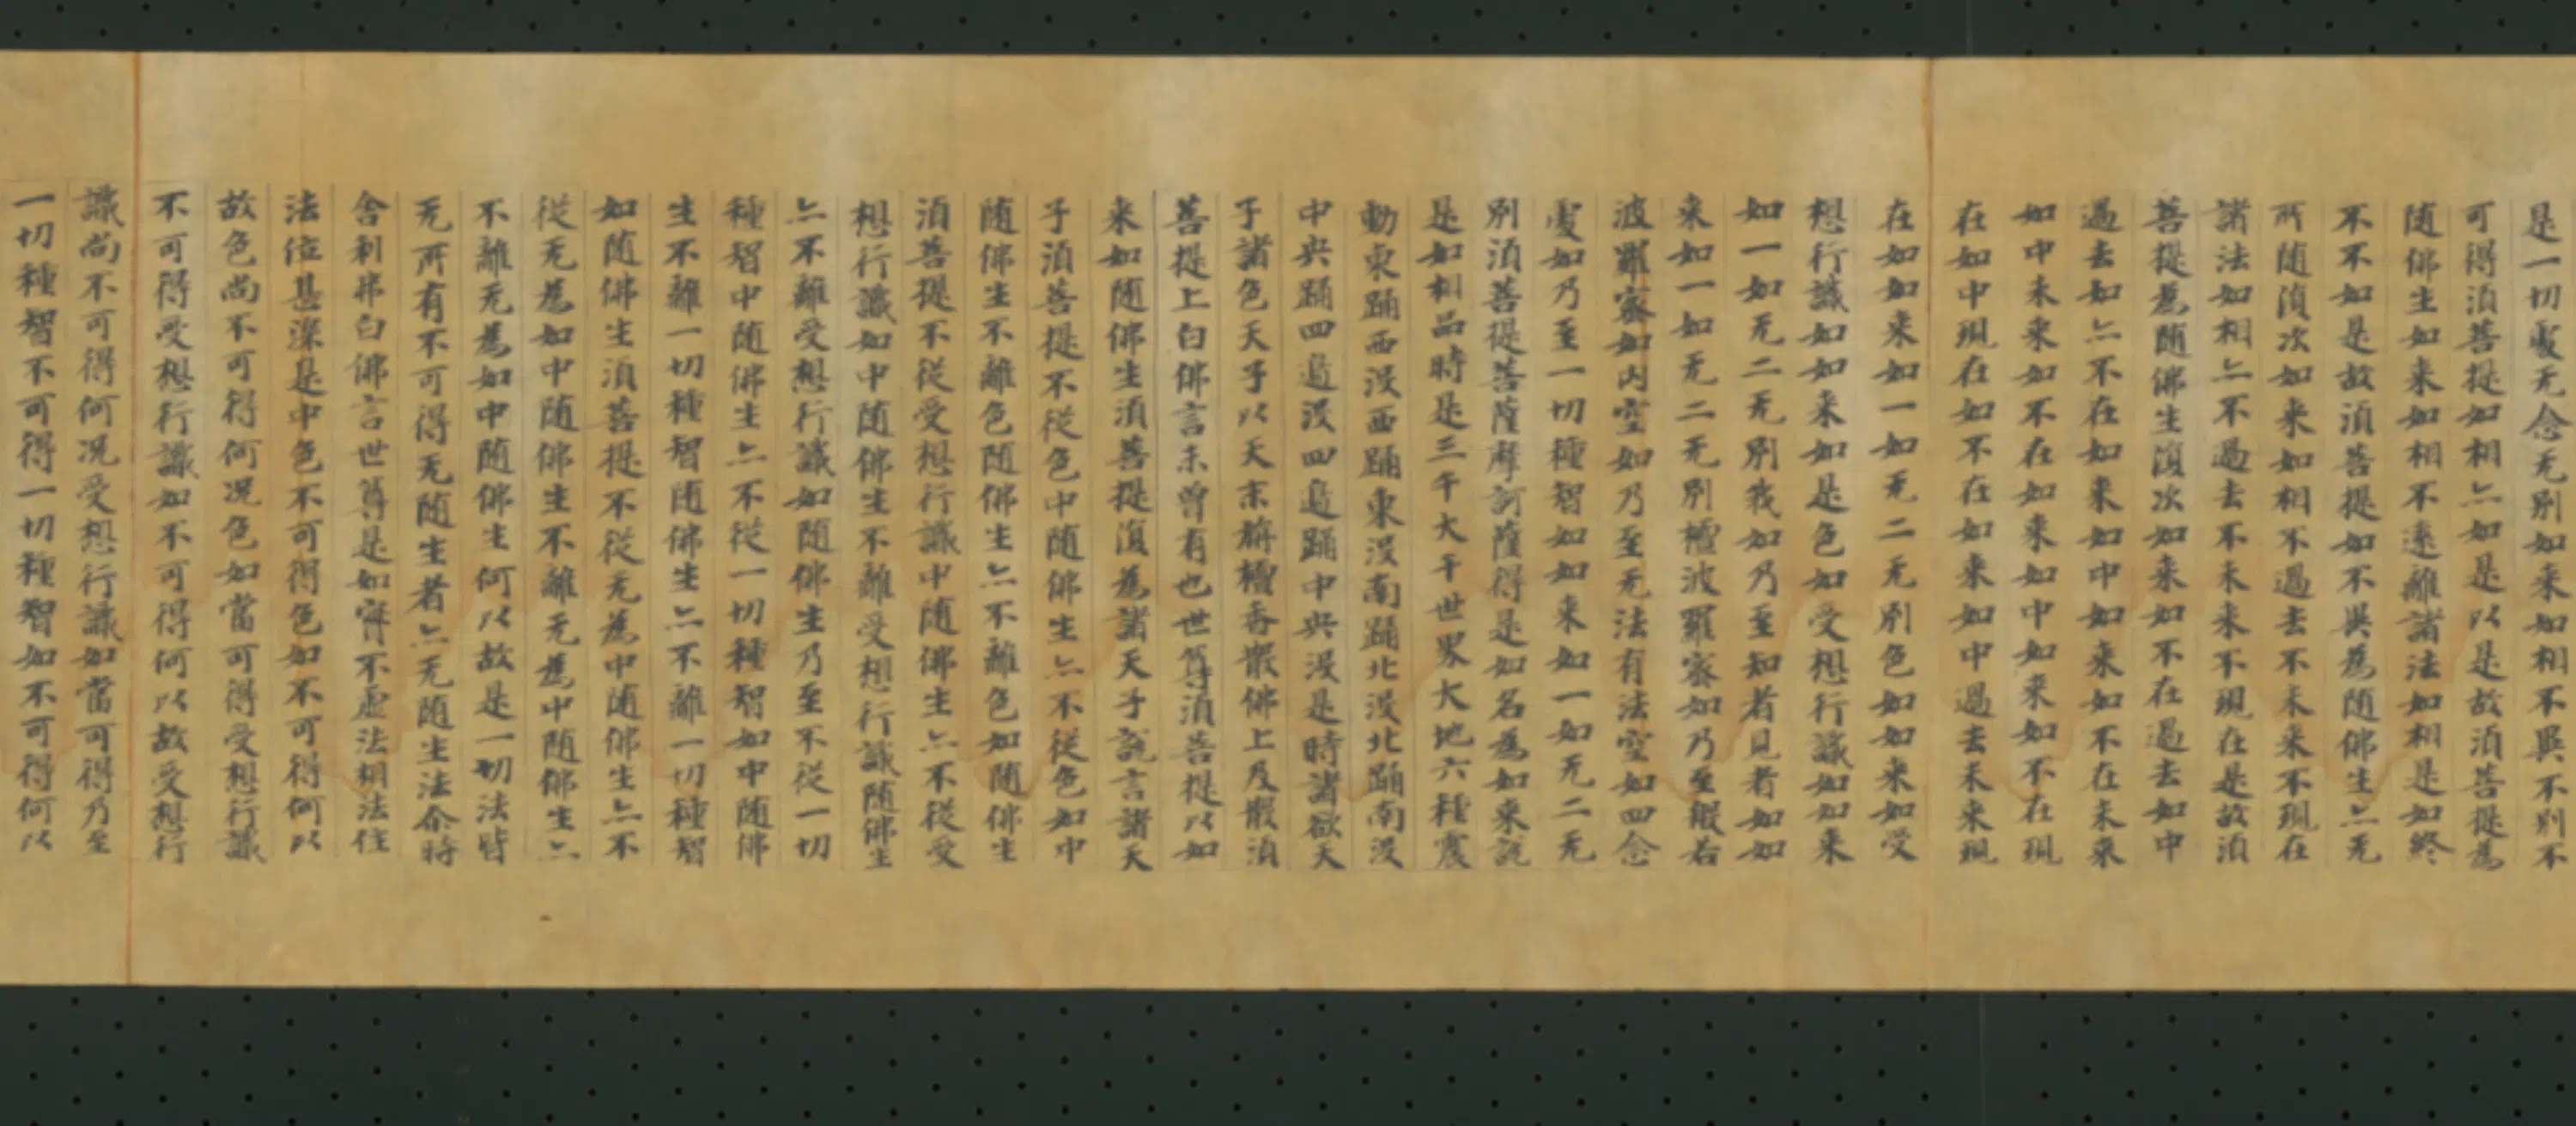 是一切處无念无別如来如相不異不別不
可得湏菩提如相亦如是以是故湏菩提為
随佛生如来如相不遠離諸法如相是如終
不不如是故湏菩提如不異為随佛生亦无
所随湏次如来如相不過去不未来不現在
諸法如相亦不過去不未来不現在是故湏
菩提為随佛生湏次如来如不在過去如中
過去如亦不在如来如中如来如不在未来
如中未来如不在如来如中如来如不在現
在如中現在如不在如来如中過去未来現
在如如来如一如无二无別色如如来如受
想行識如如来如是色如受想行識如如来
如一如无二无別我如乃至知者見者如如
来如一如无二无別檀波羅蜜如乃至般若
波羅蜜如内空如乃至无法有法空如四念
處如乃至一切種智如如来如一如无二无
別湏菩提菩薩摩訶薩得是如名為如来說
是如相品時是三千大千世界大地六種震
動東踊西没西踊東没南踊北没北踊南没
中央踊四邊没四邊踊中央没是時諸欲天
子諸色天子以天末栴檀香散佛上及散湏
菩提上白佛言未曾有也世尊湏菩提以如
来如随佛生湏菩提復為諸天子說言諸天
子湏菩提不從色中随佛生亦不從色如中
随佛生不離色随佛生亦不離色如随佛生
湏菩提不從受想行識中随佛生亦不從受
想行識如中随佛生不離受想行識随佛生
亦不離受想行識如随佛生乃至不從一切
種智中随佛生亦不從一切種智如中随佛
生不離一切種智随佛生亦不離一切種智
如随佛生湏菩提不從无為中随佛生亦不
從无為如中随佛生不離无為中随佛生亦
不離无為如中随佛生何以故是一切法皆
无所有不可得无随生者亦无随生法尒時
舎利弗白佛言世尊是如實不虚法相法住
法位甚深是中色不可得色如不可得何以
故色尚不可得何况色如當可得受想行識
不可得受想行識如不可得何以故受想行
識尚不可得何况受想行識如當可得乃至
一切種智不可得一切種智如不可得何以